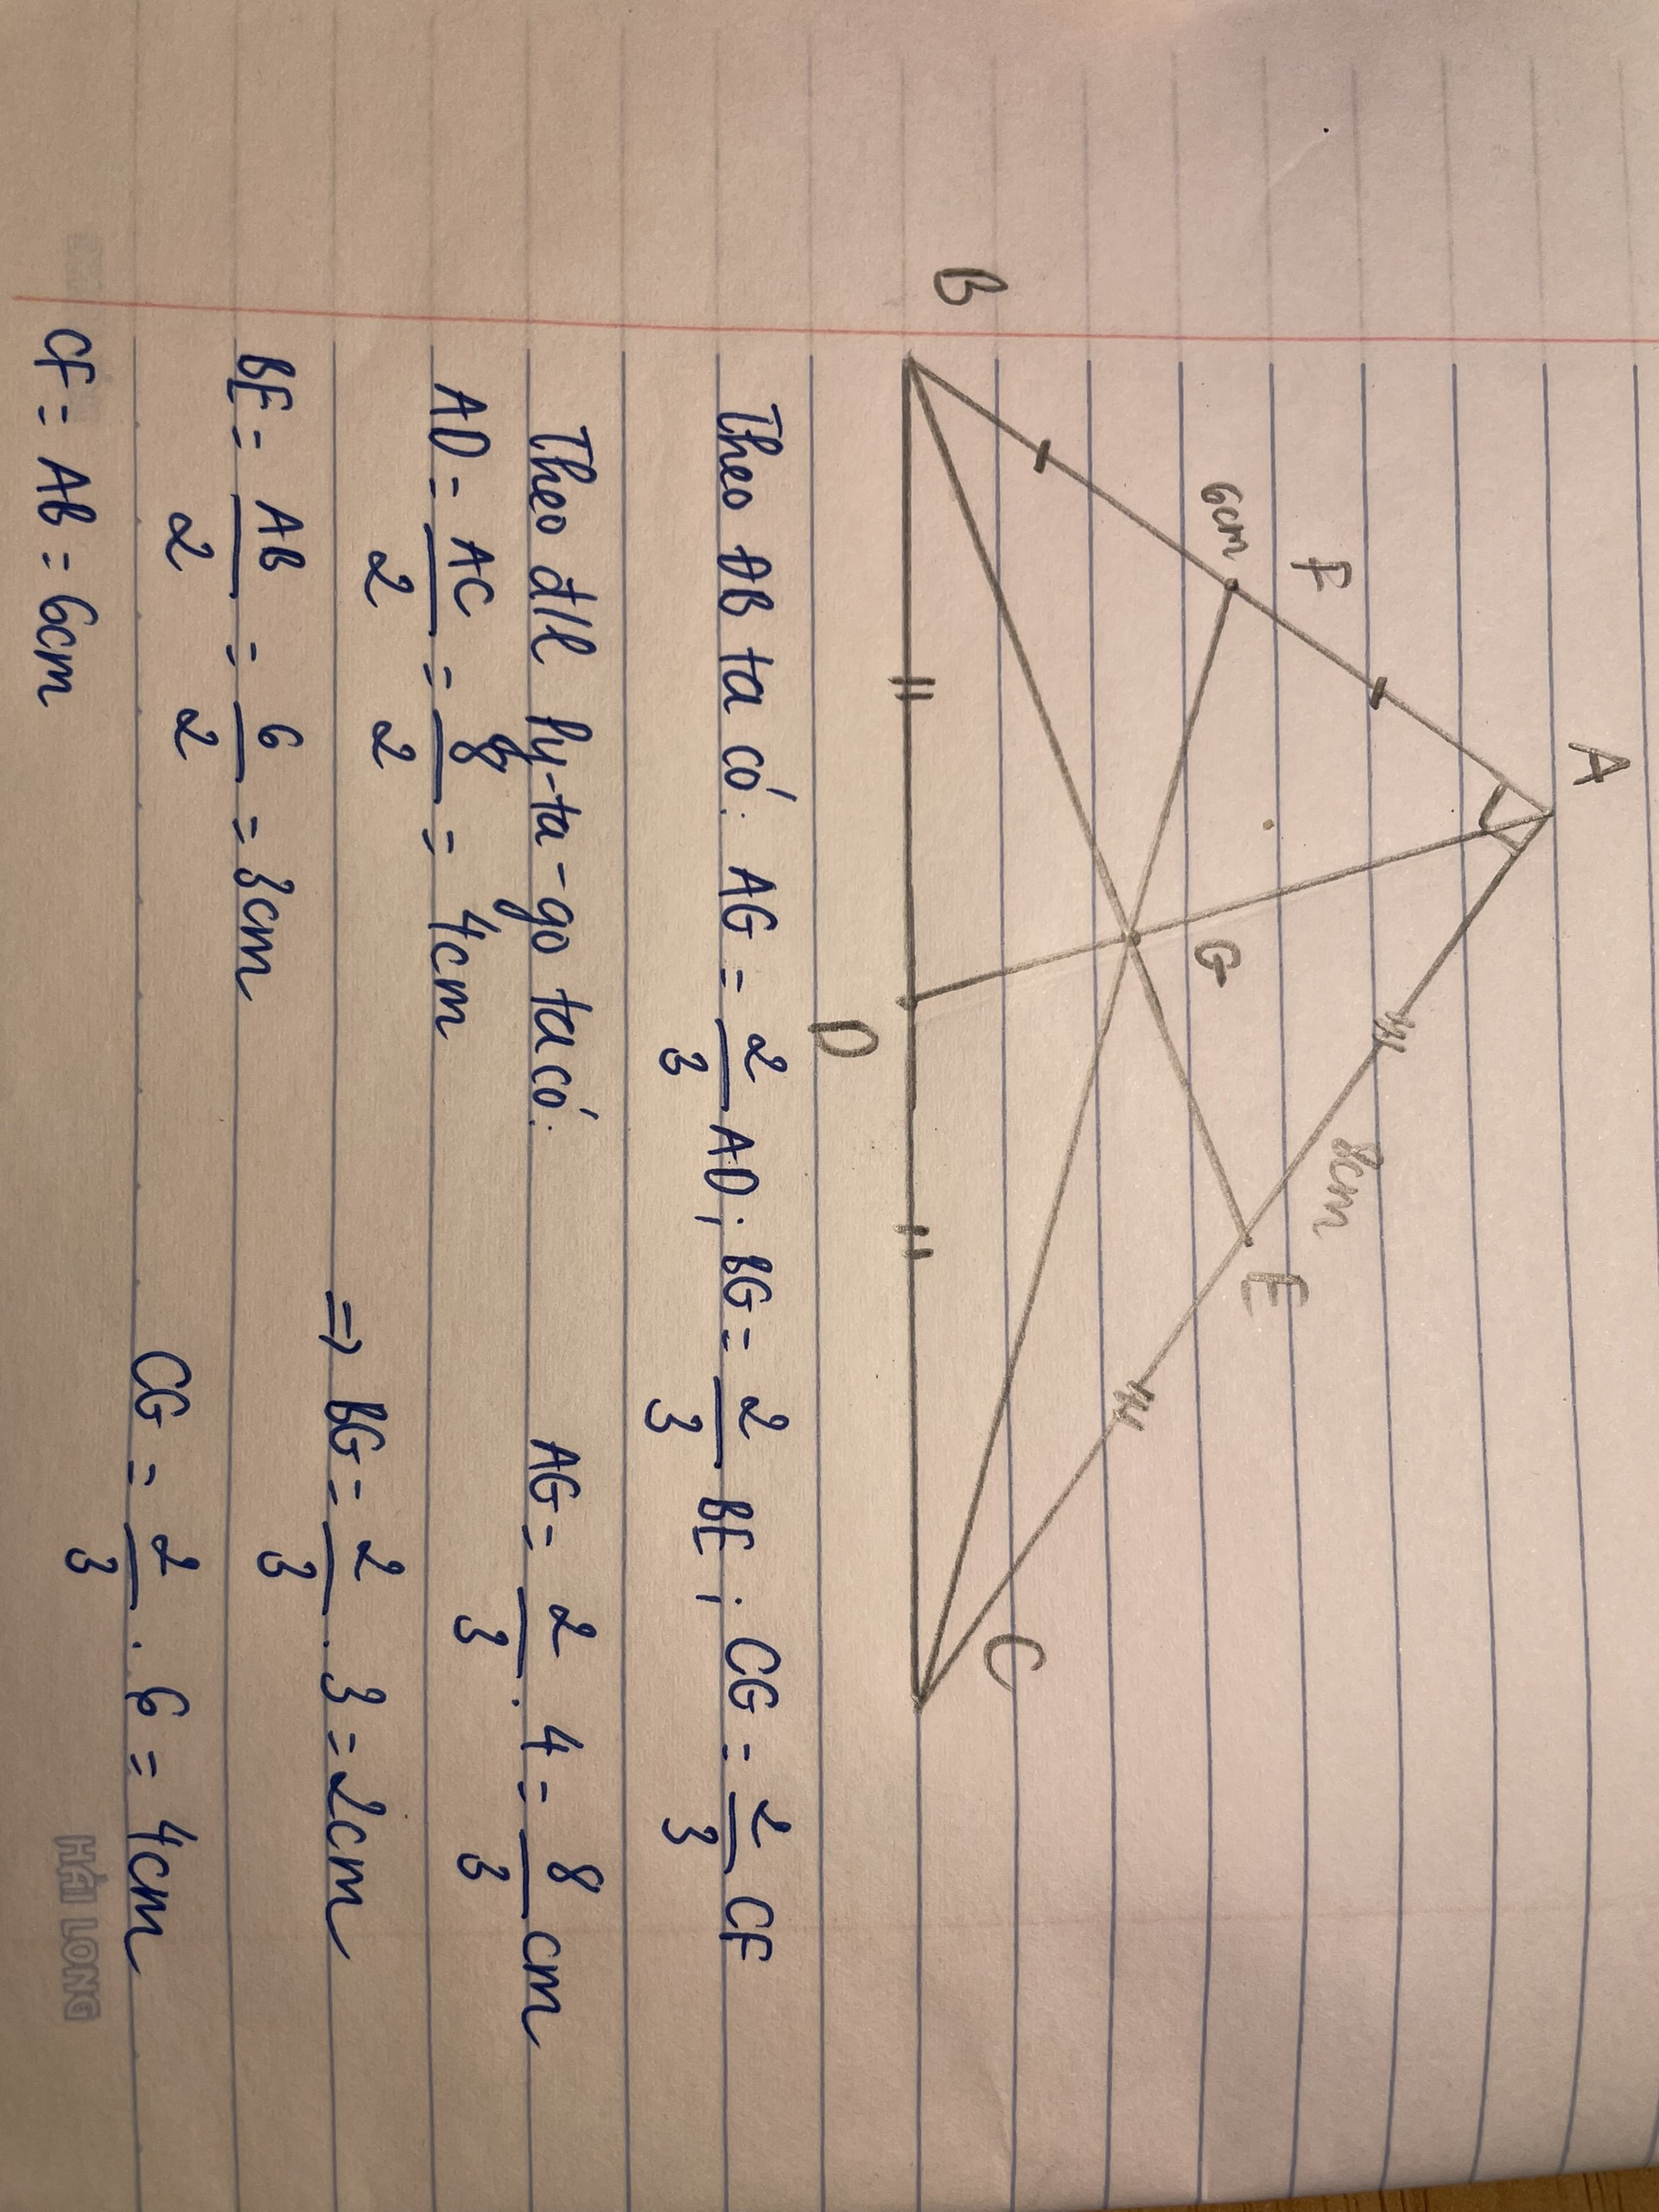 A
F
6cm
8cm
G
E
B
C
D
Theo ĐB ta có: AG = 2/3 AD; BG = 2/3 BE; CG = 2/3 CF
Theo đ/l Py-ta-go ta có:
AD = AC/2 = 8/2 = 4cm
BE = AB/2 = 6/2 = 3cm
CF = AB = 6cm
AG = 2/3 . 4 = 8/3 cm
=> BG = 2/3 . 3 = 2cm
CG = 2/3 . 6 = 4cm
HẢI LONG